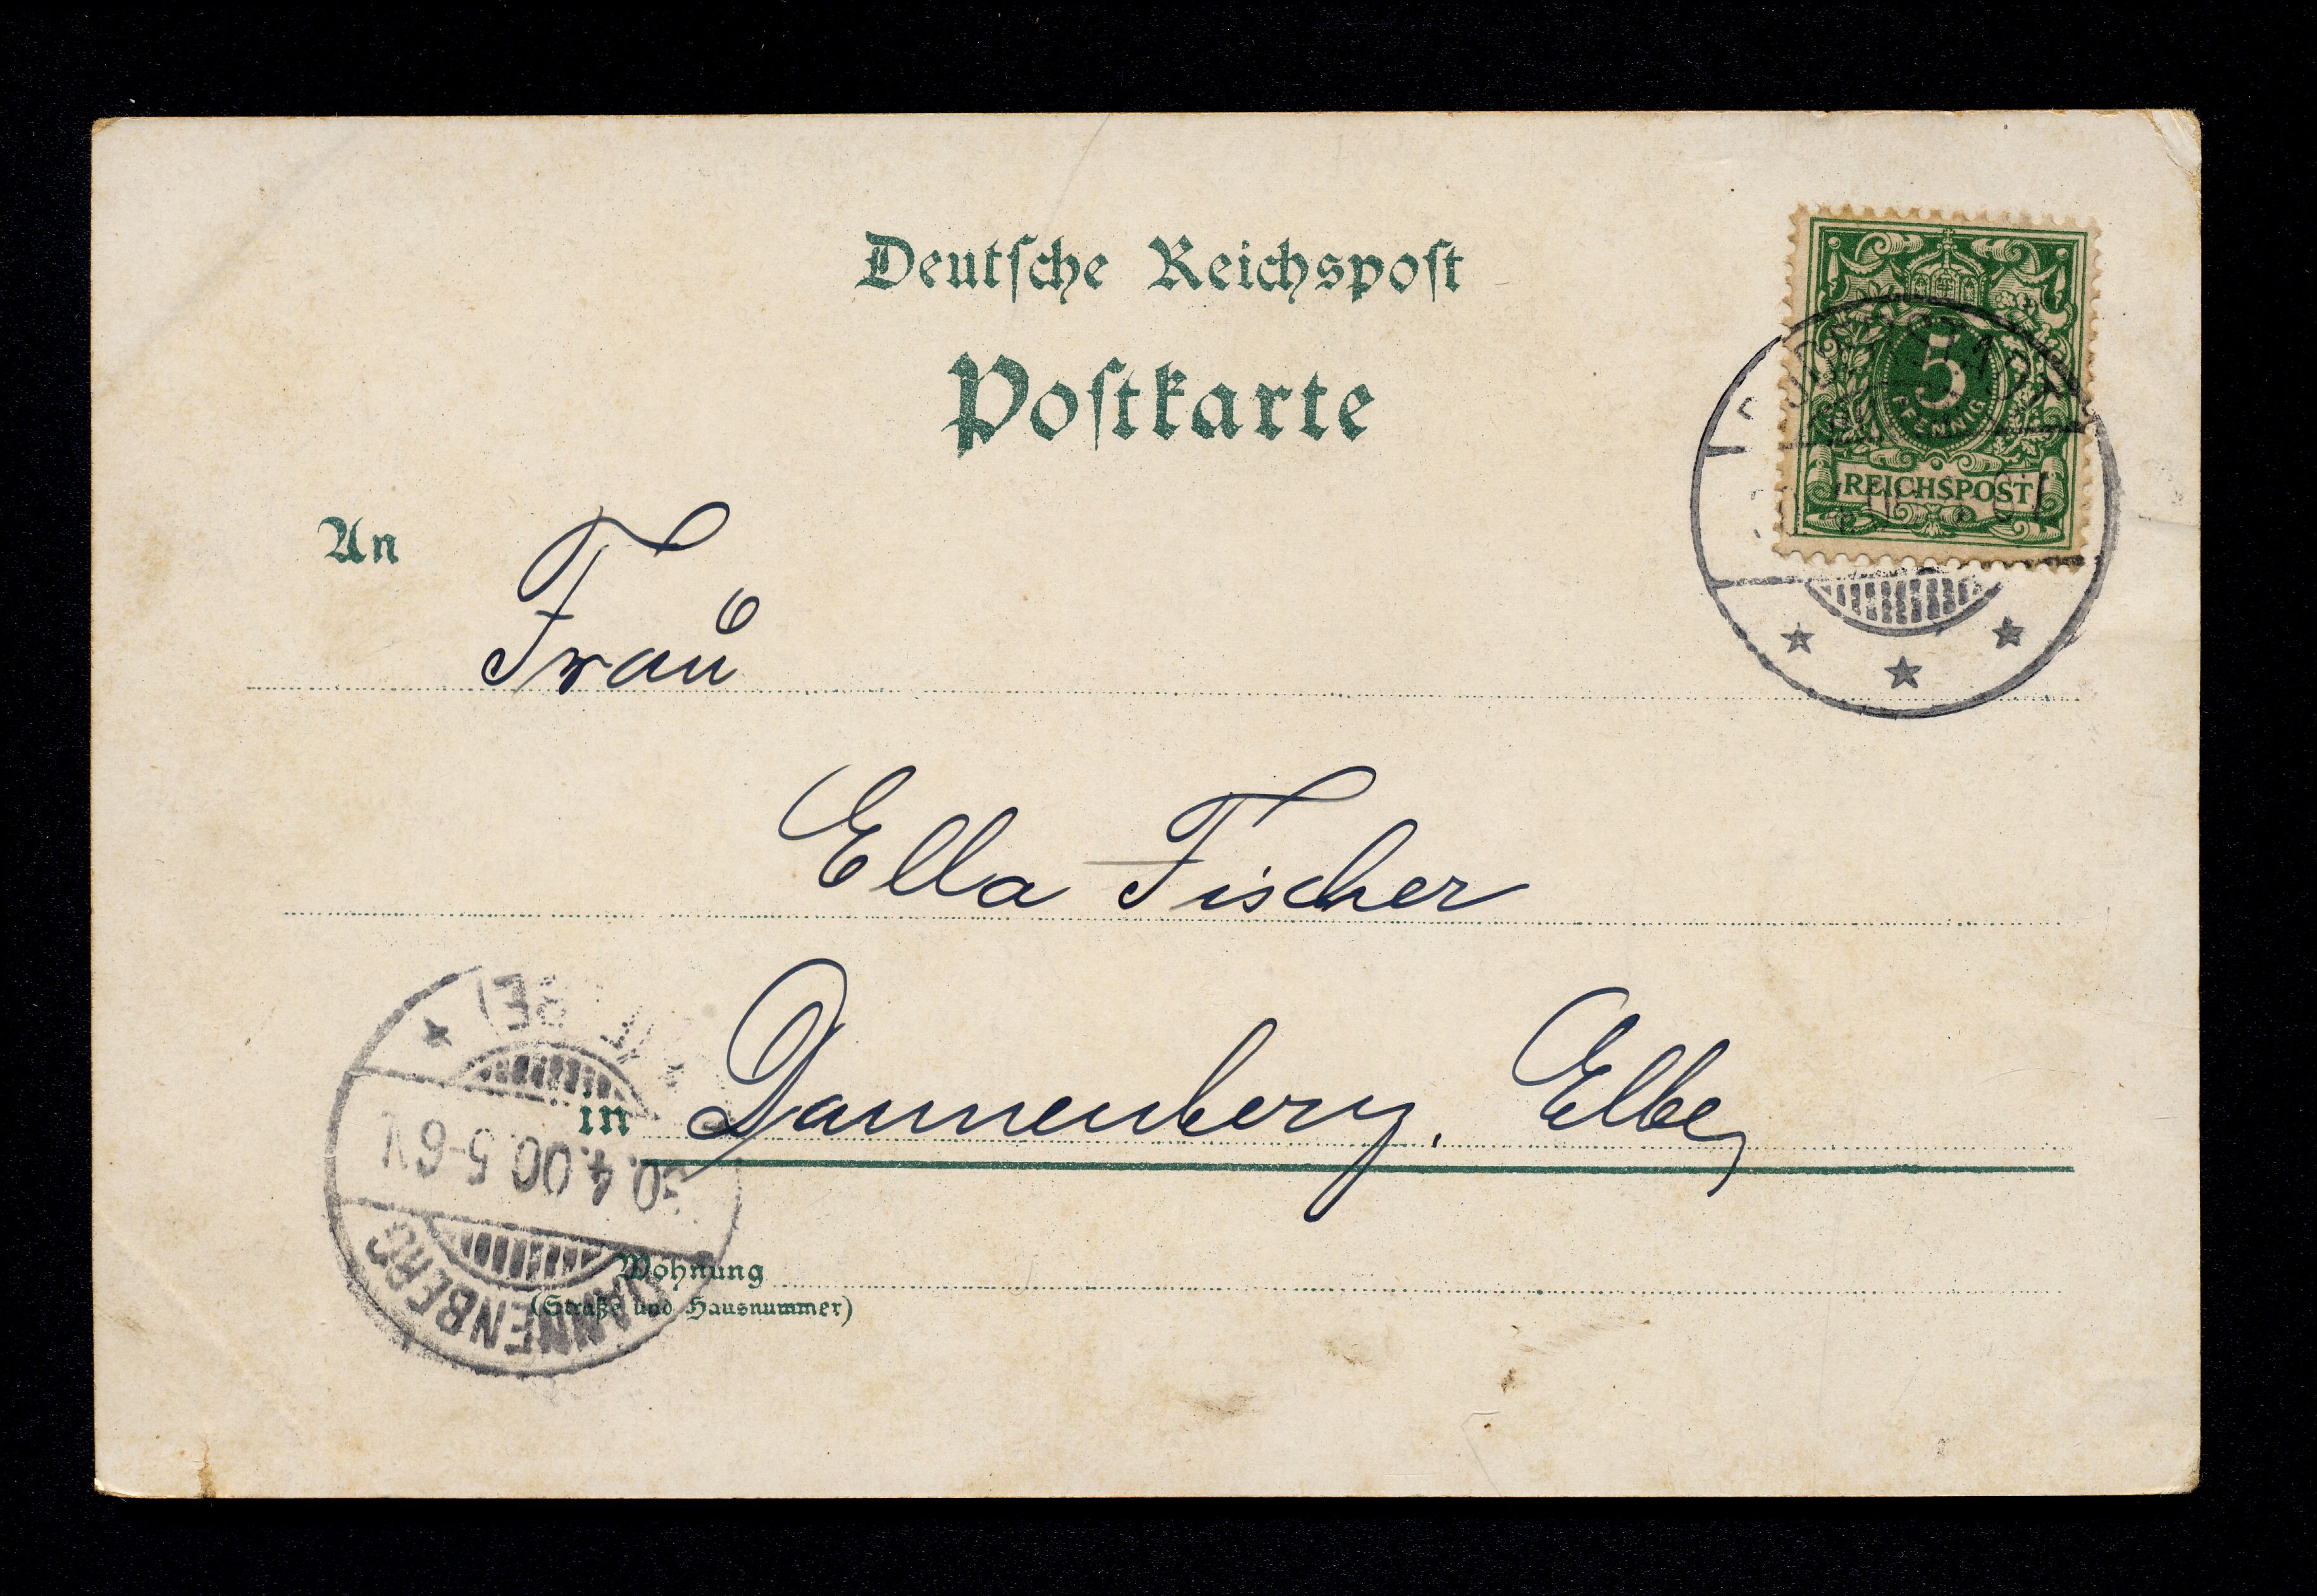 Deutsche Reichspost
Postkarte
5
PFENNIG
REICHSPOST
An
Frau
Ella Fischer
in Dannenberg. Elbe
Wohnung
(Straße und Hausnummer)
DANNENBERG
4.00.5-6V